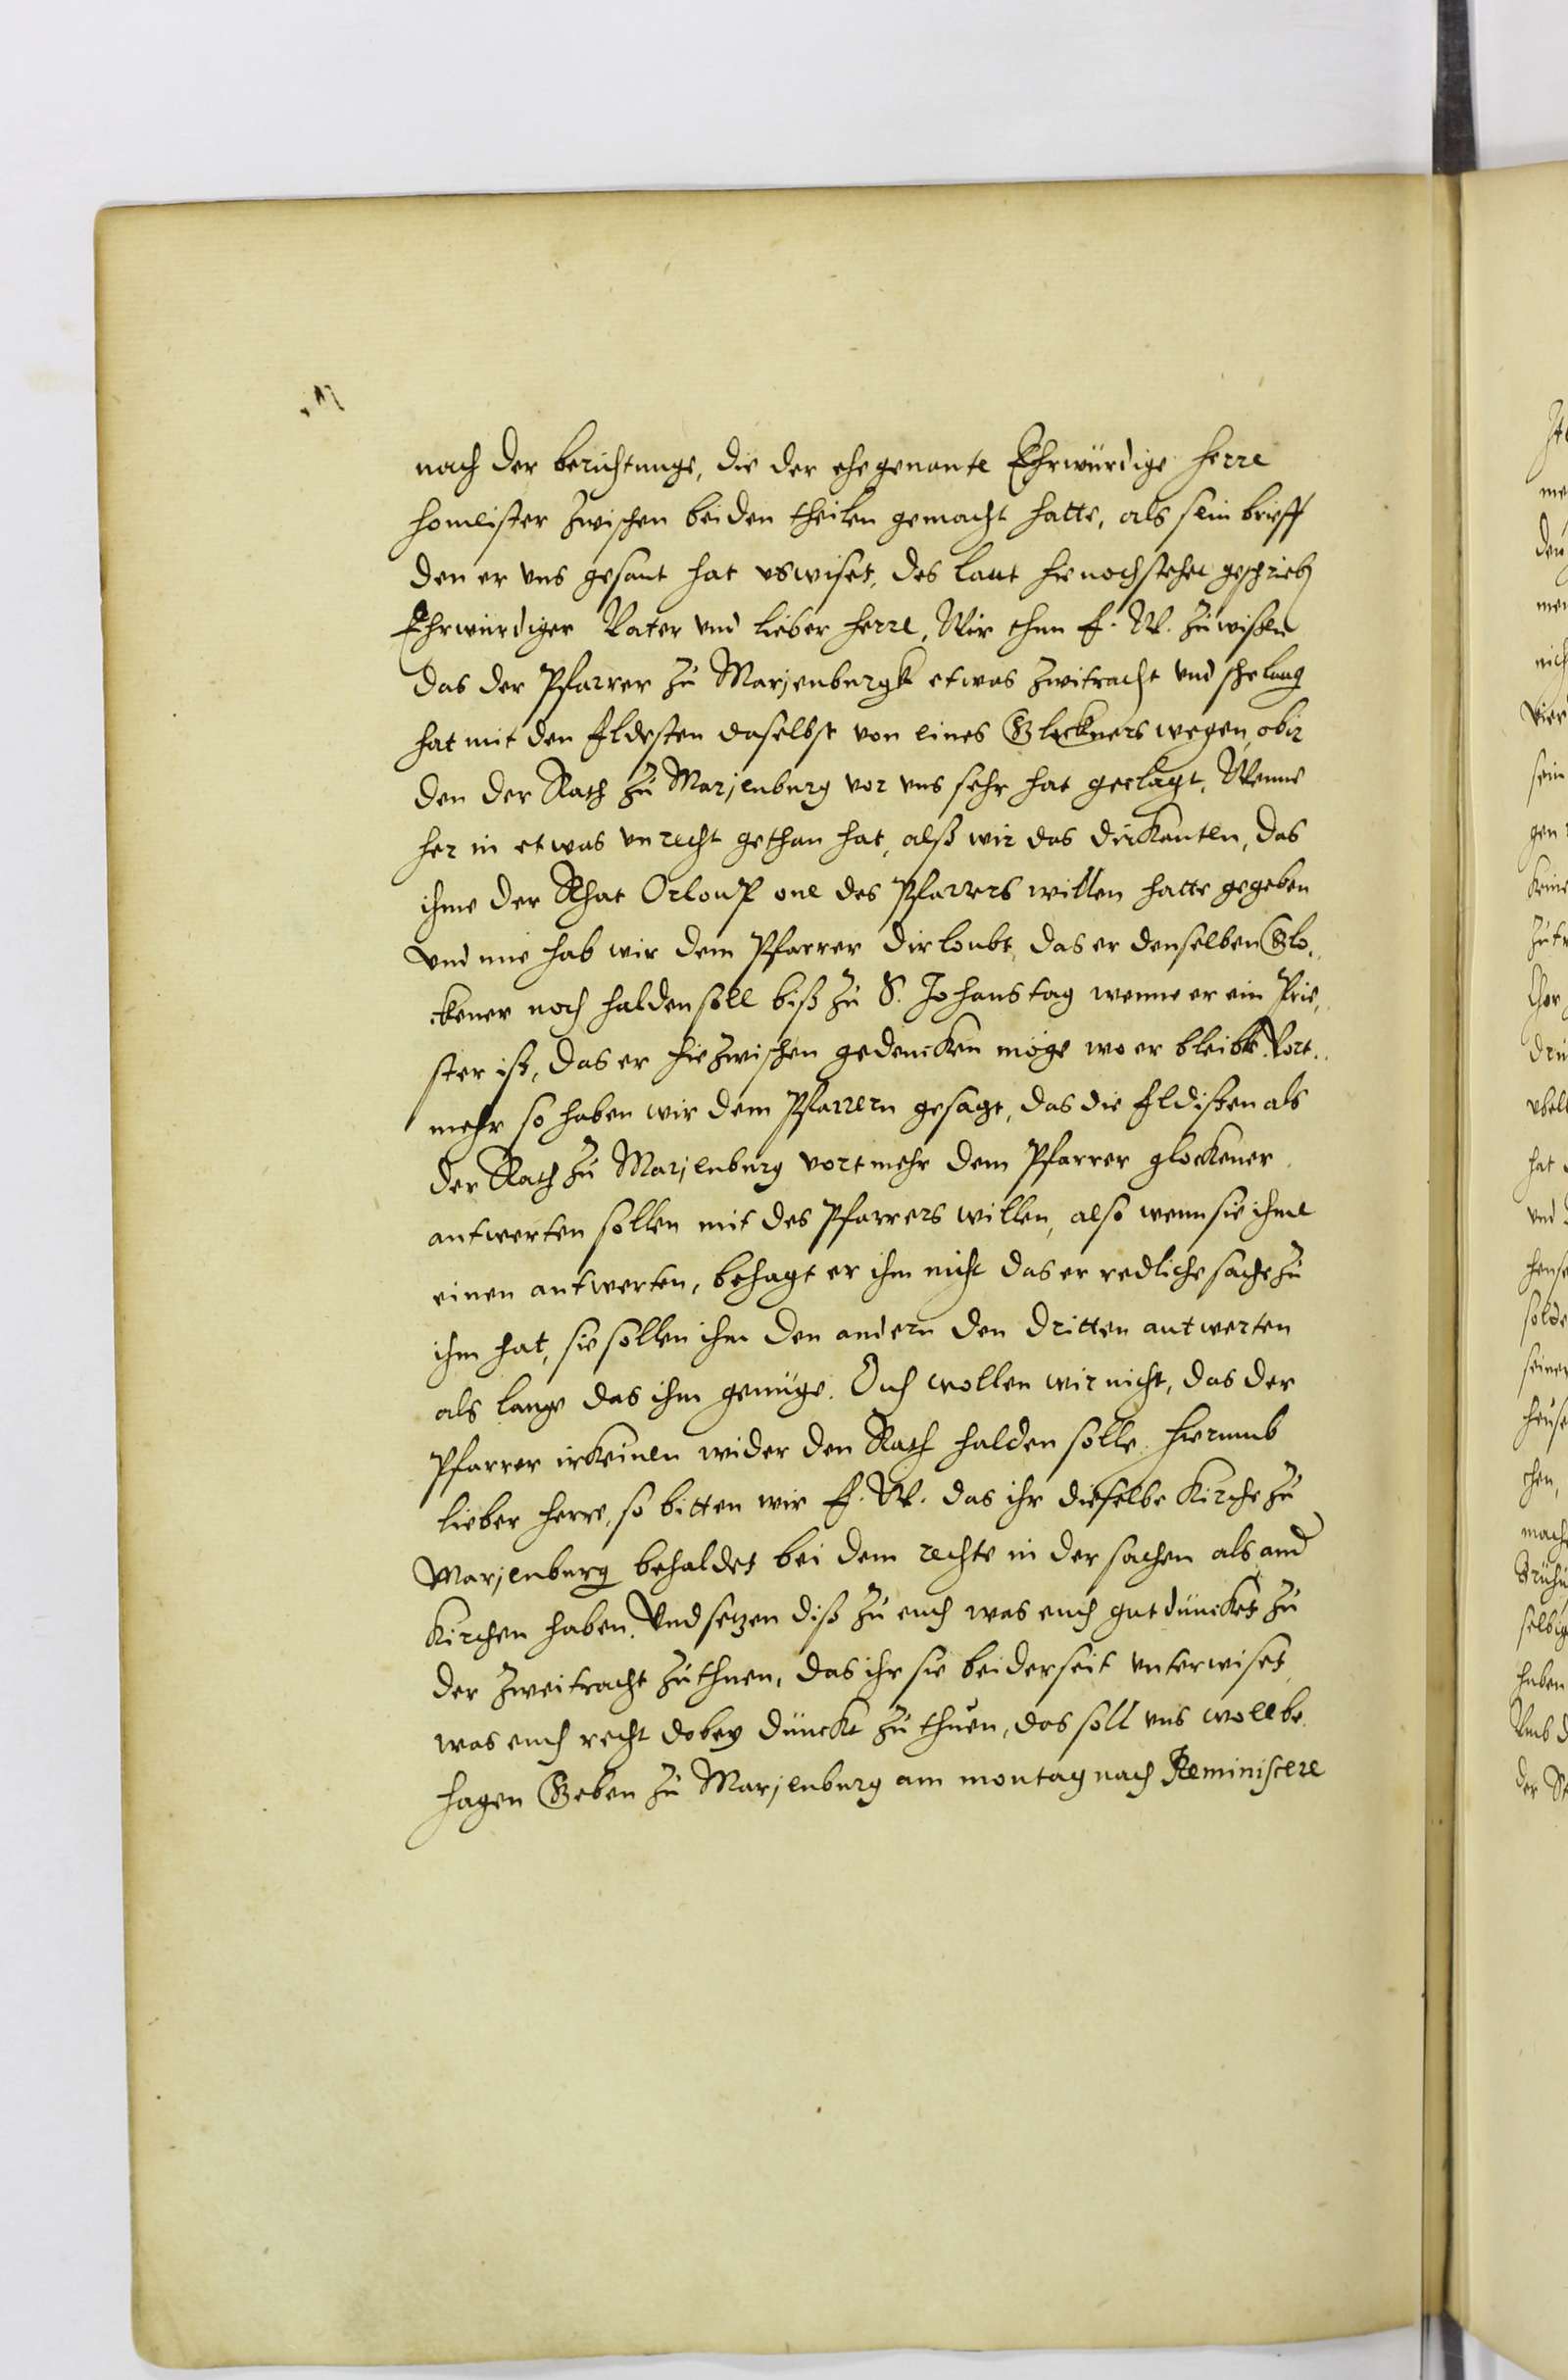 nach der berichtunge, die der ehegenante Ehrwürdige Herre
homeister zwischen beiden theilen gemacht hatte, als sein brieff
den er vns gesant hat vswiset, des laut hie nochstehet geschrieb
Ehrwürdiger Vater vnd lieber Herre, Wir thun E. W. zu wißen
das der Pfarrer zu Marienburgk etwas zwitracht vnd schelung
hat mit den Eldesten daselbst von eines Glockners wegen, obir
den der Rath zu Marienburg vor vns sehr hat geclagt, Wenne
her in etwas vnrecht gethan hat, alß wir das dirkanten, das
ihme der Rhat Orloup one des Pfarrers willen hatte gegeben
vnd nue hab wir dem Pfarrer dirloubt, das er denselben Glo-
ckener noch halden soll biß zu S. Johanstag wenne er ein Prie-
ster ist, das er hiezwischen gedencken möge wo er bleibe. Vort-
mehr so haben wir dem Pfarrern gesagt, das die Eldisten als
der Rath zu Marienburg vortmehr dem Pfarrer glockener
antwerten sollen mit des Pfarrers willen, also wenn sie ihme
einen antwerten, behagt er ihm nicht das er redliche sache zu
ihm hat, sie sollen ihm den andern den dritten antwerten
als lange das ihm genüge. Ouch wollen wir nicht, das der
Pfarrer irkeinen wider den Rath halden solle. Hierumb
lieber Herre, so bitten wir E. W. das ihr dieselbe Kirche zu
Marienburg behaldet bei dem rechte in der sachen als and
Kirchen haben. Vnd setzen diß zu euch was euch gut düncket zu
der zweitracht zuthuen, das ihr sie beiderseit vnterwiset,
was euch recht dobey dünckt zu thuen, das soll vns woll be-
hagen Geben zu Marienburg am montag nach Reminiscere